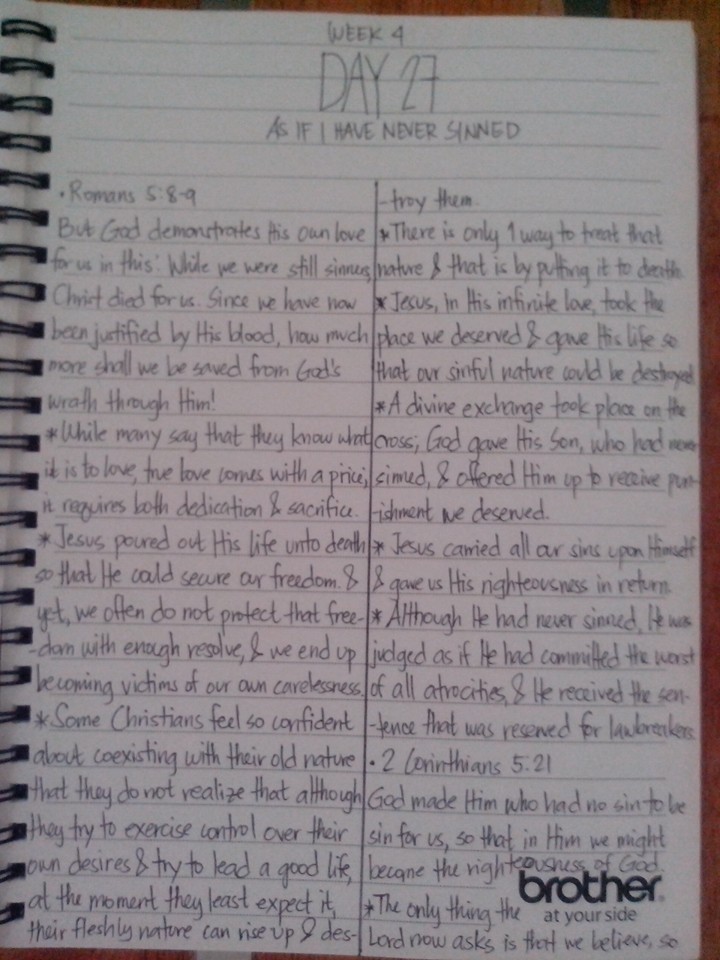 WEEK 4
DAY 27
AS IF I HAVE NEVER SINNED
• Romans 5:8-9
But God demonstrates His own love
for us in this: While we were still sinners,
Christ died for us. Since we have now
been justified by His blood, how much
more shall we be saved from God's
wrath through Him!
* While many say that they know what
it is to love, true love comes with a price;
it requires both dedication & sacrifice.
* Jesus poured out His life unto death
so that He could secure our freedom. &
yet, we often do not protect that free-
-dom with enough resolve, & we end up
becoming victims of our own carelessness.
* Some Christians feel so confident
about coexisting with their old nature
that they do not realize that although
they try to exercise control over their
own desires & try to lead a good life,
at the moment they least expect it,
their fleshly nature can rise up & des-
-troy them.
* There is only 1 way to treat that
nature & that is by putting it to death.
* Jesus, in His infinite love, took the
place we deserved & gave His life so
that our sinful nature could be destroyed
* A divine exchange took place on the
cross; God gave His Son, who had never
sinned, & offered Him up to receive pun-
-ishment we deserved.
* Jesus carried all our sins upon Himself
& gave us His righteousness in return.
* Although He had never sinned, He was
judged as if He had committed the worst
of all atrocities, & He received the sen-
-tence that was reserved for lawbreakers
• 2 Corinthians 5:21
God made Him who had no sin to be
sin for us, so that in Him we might
became the righteousness of God.
* The only thing the
Lord now asks is that we believe, so
brother
at your side